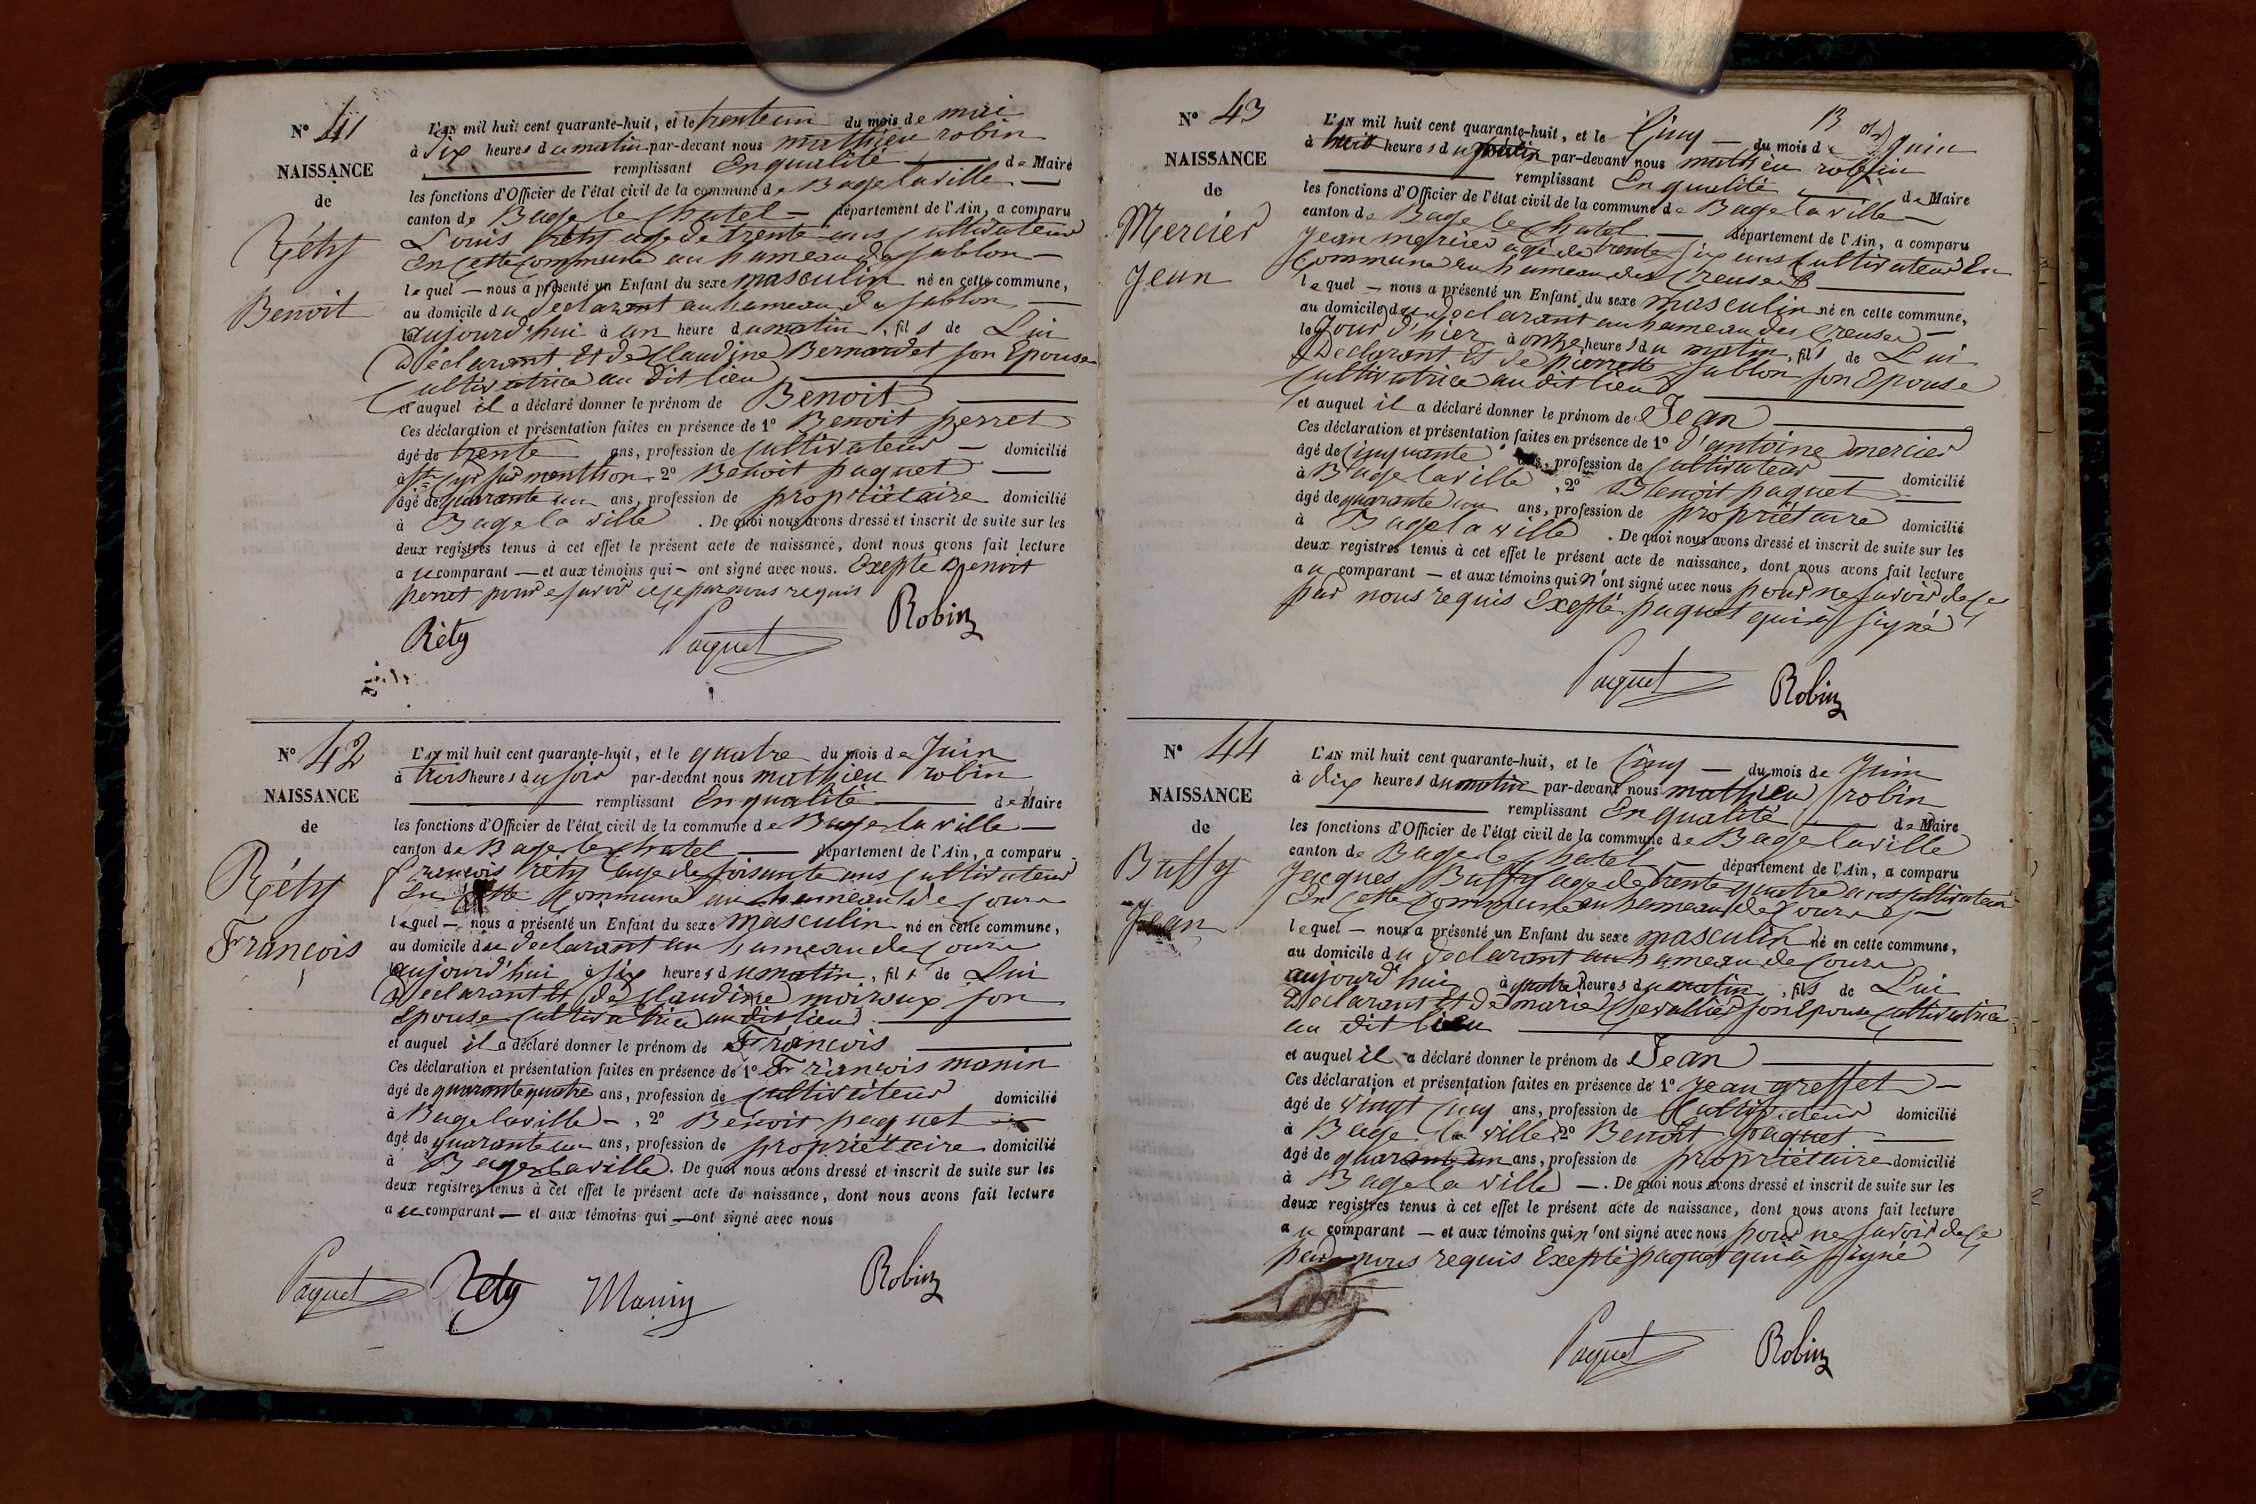 N° 41
NAISSANCE
de
Réty
Benoit
L'AN mil huit cent quarante-huit, et le trente un du mois de mai
à Six heures du matin par-devant nous mathieu robin
remplissant En qualité de Maire
les fonctions d'Officier de l'état civil de la commune de Bage la ville
canton de Bage le Chatel département de l'Ain, a comparu
Louis Réty age de trente ans Cultivateur
En Cette Commune au hameau du Sablon
lequel nous a présenté un Enfant du sexe masculin né en cette commune,
au domicile du declarant au hameau du Sablon
aujourd'hui à un heure du matin, fils de Lui
Déclarant Et de Claudine Bernardet son Epouse
Cultivatrice au Dit lieu
et auquel il a déclaré donner le prénom de Benoit
Ces déclaration et présentation faites en présence de 1° Benoit perret
âgé de trente ans, profession de Cultivateur domicilié
à St Cyr sur menthon 2° Benoit paquet
âgé de quarante un ans, profession de propriétaire domicilié
à Bage la ville. De quoi nous avons dressé et inscrit de suite sur les
deux registres tenus à cet effet le présent acte de naissance, dont nous avons fait lecture
au comparant et aux témoins qui ont signé avec nous. Exepte Benoit
perret pour ne savoir de ce par nous requis
Réty Paquet Robin
N° 42
NAISSANCE
de
Réty
François
L'AN mil huit cent quarante-huit, et le quatre du mois de Juin
à trois heures du soir par-devant nous mathieu robin
remplissant En qualité de Maire
les fonctions d'Officier de l'état civil de la commune de Bage la ville
canton de Bage le chatel département de l'Ain, a comparu
francois Réty age de soisante ans Cultivateur
En Cette Commune au hameau de Coura
lequel nous a présenté un Enfant du sexe masculin né en cette commune,
au domicile du declarant au hameau de Coura
aujourd'hui à six heures du matin, fils de Lui
Declarant Et de Claudine moiroux son
Epouse Cultivatrice au dit lieu
et auquel il a déclaré donner le prénom de François
Ces déclaration et présentation faites en présence de 1° François manin
âgé de quarante quatre ans, profession de Cultivateur domicilié
à Bage la ville, 2° Benoit paquet
âgé de quarante un ans, profession de propriétaire domicilié
à Bage la ville. De quoi nous avons dressé et inscrit de suite sur les
deux registres tenus à cet effet le présent acte de naissance, dont nous avons fait lecture
au comparant et aux témoins qui ont signé avec nous
Paquet Réty Manin Robin
N° 43
NAISSANCE
de
Mercier
Jean
L'AN mil huit cent quarante-huit, et le Cinq du mois de Juin
à huit heures du matin par-devant nous mathieu robin
remplissant En qualité de Maire
les fonctions d'Officier de l'état civil de la commune de Bage la ville
canton de Bage le Chatel département de l'Ain, a comparu
Jean mercier agé de trente six ans Cultivateur En
Commune au hameau des Creuses
lequel nous a présenté un Enfant du sexe masculin né en cette commune,
au domicile du declarant au hameau des Creuses
le Jour d'hier à onze heures du matin, fils de Lui
Declarant Et de pierrette Sablon son Epouse
Cultivatrice au dit lieu
et auquel il a déclaré donner le prénom de Jean
Ces déclaration et présentation faites en présence de 1° d'antoine mercier
âgé de Cinquante ans, profession de Cultivateur domicilié
à Bage la ville, 2° Benoit paquet
âgé de quarante un ans, profession de propriétaire domicilié
à Bage la ville. De quoi nous avons dressé et inscrit de suite sur les
deux registres tenus à cet effet le présent acte de naissance, dont nous avons fait lecture
au comparant et aux témoins qui n'ont signé avec nous pour ne savoir de ce
par nous requis Exepté paquet qui à signé
Paquet Robin
N° 44
NAISSANCE
de
Buffy
Jean
L'AN mil huit cent quarante-huit, et le Cinq du mois de Juin
à dix heures du matin par-devant nous mathieu robin
remplissant En qualité de Maire
les fonctions d'Officier de l'état civil de la commune de Bage la ville
canton de Bage le Chatel département de l'Ain, a comparu
Jacques Buffy age de trente quatre ans Cultivateur
En Cette Commune au hameau de Coura
lequel nous a présenté un Enfant du sexe masculin né en cette commune,
au domicile du declarant au hameau de Coura
aujourd'hui à quatre heures du matin, fils de Lui
Declarant Et de marie Chevallier son Epouse Cultivatrice
au dit lieu
et auquel il a déclaré donner le prénom de Jean
Ces déclaration et présentation faites en présence de 1° Jean greffet
âgé de vingt Cinq ans, profession de Cultivateur domicilié
à Bage la ville 2° Benoit paquet
âgé de quarante un ans, profession de propriétaire domicilié
à Bage la ville. De quoi nous avons dressé et inscrit de suite sur les
deux registres tenus à cet effet le présent acte de naissance, dont nous avons fait lecture
au comparant et aux témoins qui n'ont signé avec nous pour ne savoir de ce
par nous requis Exepté paquet qui à signé
Paquet Robin